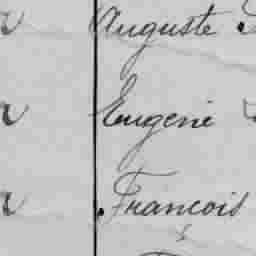 Auguste
Eugene
Francois